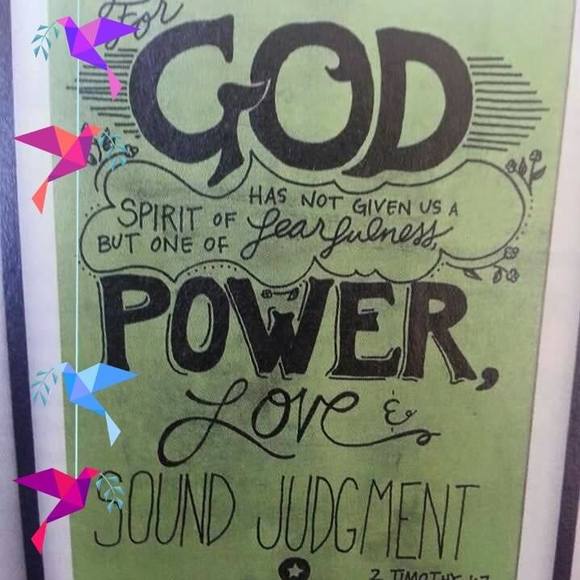 For
GOD
HAS NOT GIVEN US A
SPIRIT OF fearfulness,
BUT ONE OF
POWER,
Love &
SOUND JUDGMENT
2 TIMOTHY 1:7